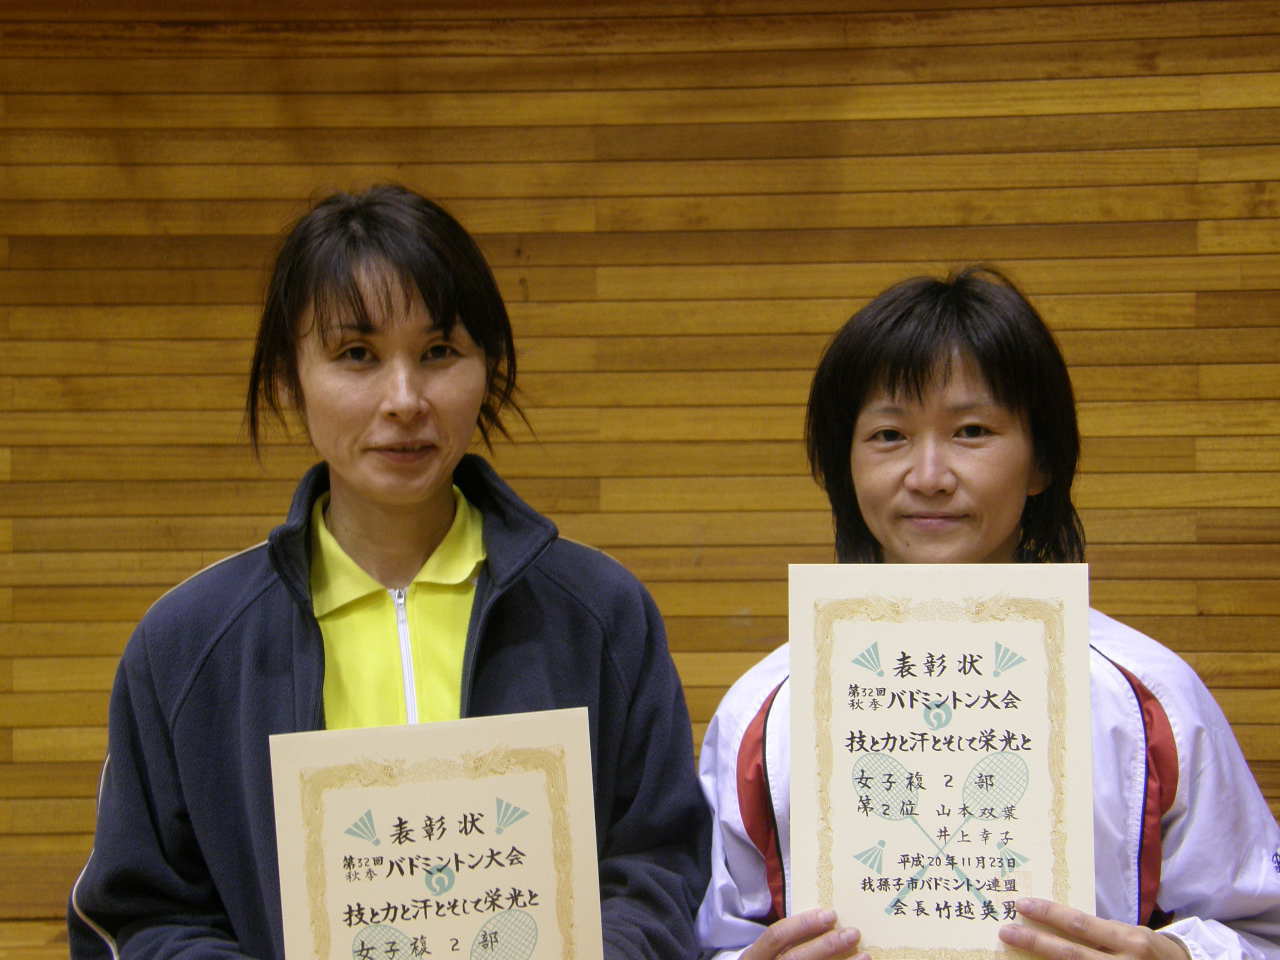 表彰状
第32回
秋季
バドミントン大会
技と力と汗とそして栄光と
女子複 2 部
表彰状
第32回
秋季
バドミントン大会
技と力と汗とそして栄光と
女子複 2 部
第2位 山本双葉
井上幸子
平成20年11月23日
我孫子市バドミントン連盟
会長 竹越英男